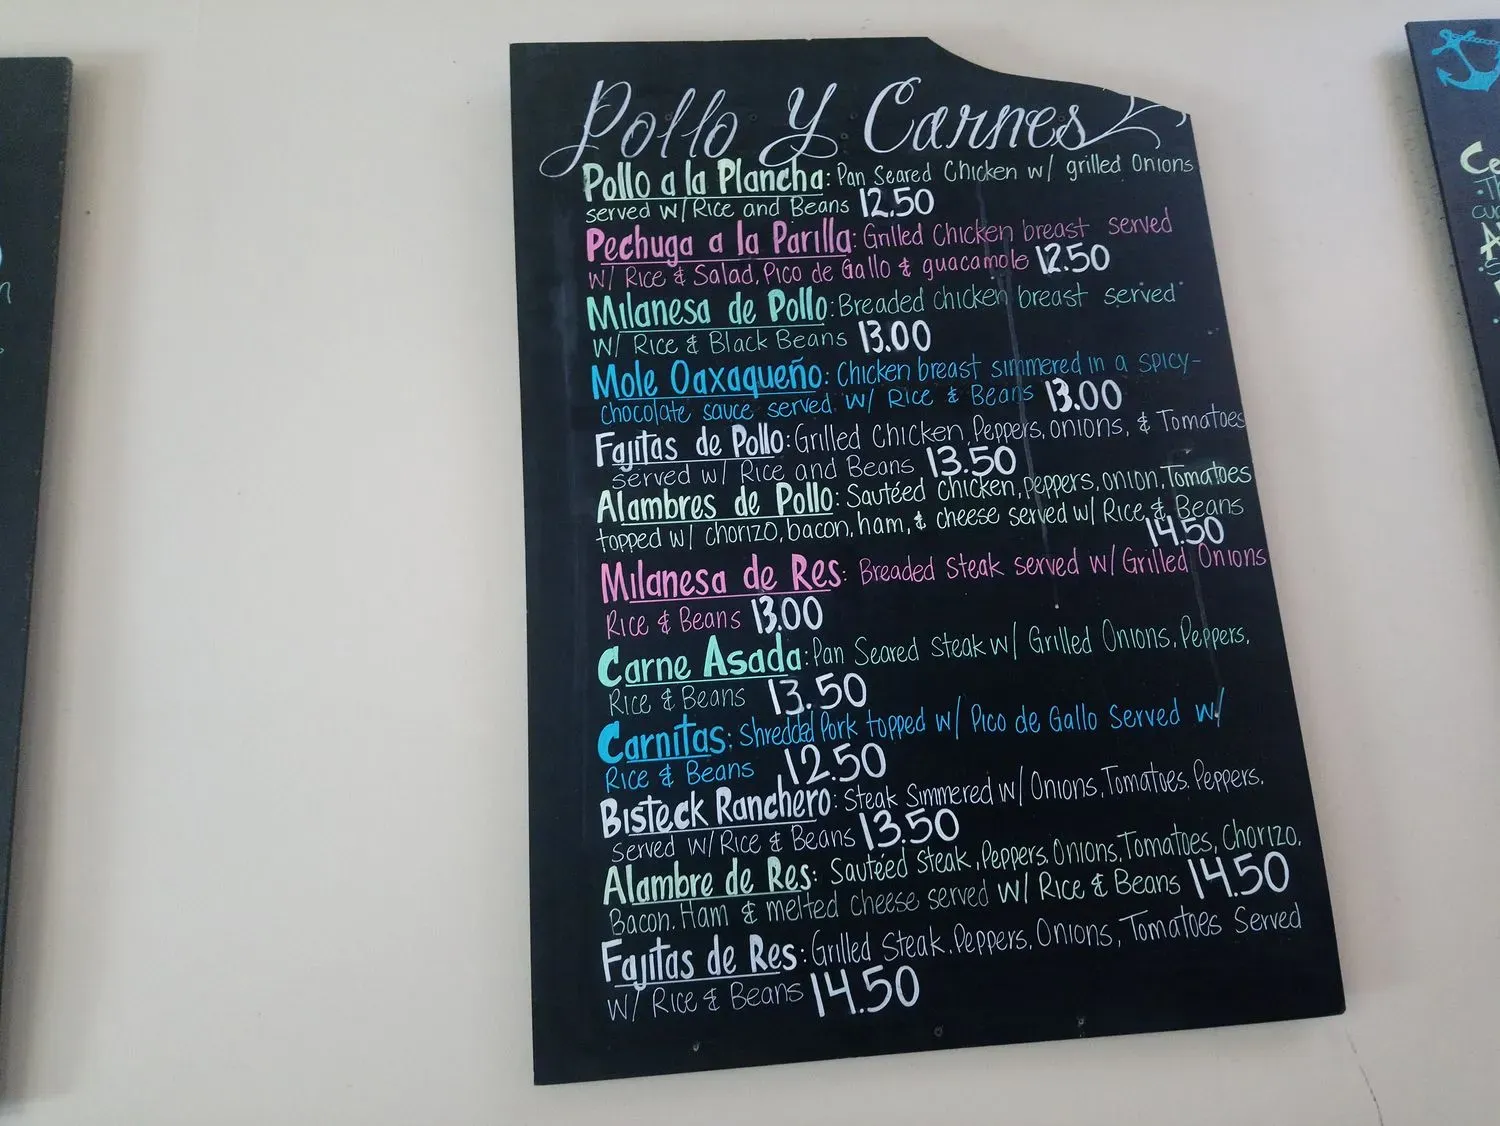 Pollo y Carnes
Pollo a la Plancha: Pan Seared Chicken w/ grilled Onions
served w/ Rice and Beans 12.50
Pechuga a la Parilla: Grilled Chicken breast served
w/ Rice & Salad, Pico de Gallo & guacamole 12.50
Milanesa de Pollo: Breaded chicken breast served
w/ Rice & Black Beans 13.00
Mole Oaxaqueño: Chicken breast simmered in a spicy-
chocolate sauce served w/ Rice & Beans 13.00
Fajitas de Pollo: Grilled Chicken, Peppers, onions, & Tomatoes
served w/ Rice and Beans 13.50
Alambres de Pollo: Sautéed chicken, peppers, onion, Tomatoes
topped w/ chorizo, bacon, ham, & cheese served w/ Rice & Beans
14.50
Milanesa de Res: Breaded Steak served w/ Grilled Onions
Rice & Beans 13.00
Carne Asada: Pan Seared Steak w/ Grilled Onions, Peppers,
Rice & Beans 13.50
Carnitas: Shredded Pork topped w/ Pico de Gallo Served w/
Rice & Beans 12.50
Bisteck Ranchero: Steak Simmered w/ Onions, Tomatoes, Peppers,
served w/ Rice & Beans 13.50
Alambre de Res: Sautéed Steak, Peppers, Onions, Tomatoes, Chorizo,
Bacon, Ham & melted cheese served w/ Rice & Beans 14.50
Fajitas de Res: Grilled Steak, Peppers, Onions, Tomatoes Served
w/ Rice & Beans 14.50